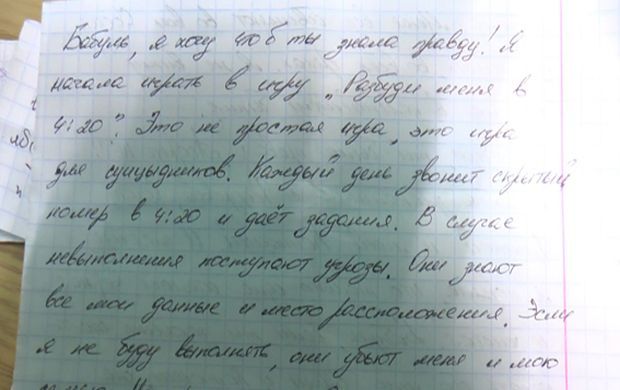 Бабуль, я хочу чтоб ты знала правду! Я
начала играть в игру „Разбуди меня в
4:20”. Это не простая игра, это игра
для суицыдников. Каждый день звонит скрытый
номер в 4:20 и даёт задания. В случае
невыполнения поступают угрозы. Они знают
все мои данные и место рассположения. Если
я не буду выполнять, они убьют меня и мою